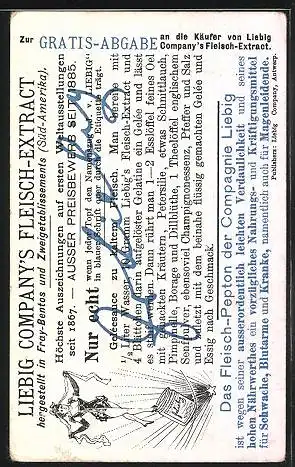 Zur GRATIS-ABGABE an die Käufer von Liebig Company's Fleisch-Extract.
LIEBIG COMPANY'S FLEISCH-EXTRACT
hergestellt in Fray-Bentos und Zweigetablissements (Süd-Amerika)
Höchste Auszeichnungen auf ersten Weltausstellungen
seit 1867. AUSSER PREISBEWERB SEIT 1885.
Nur echt wenn jeder Topf den Namenszug J. v. „LIEBIG"
in blauer Schrift quer durch die Etiquette trägt.
Geleesauce zu kaltem Fleisch. Man bereite mit
Liter Wasser, Liebig's Fleisch-Extract und
4 Blättchen klar aufgelöster Gelatine ein Gelée und lässt
es steif werden. Dann rührt man 1—2 Esslöffel feines Oel
mit gehackten Kräutern, Petersilie, etwas Schnittlauch,
Pimpinelle, Borage und Dillblüthe, 1 Theelöffel englischem
Senfpulver, ebensoviel Champignonessenz, Pfeffer und Salz
und zuletzt mit dem beinahe flüssig gemachten Gelée und
Essig nach Geschmack.
Das Fleisch-Pepton der Compagnie Liebig
ist wegen seiner ausserordentlich leichten Verdaulichkeit und seines
hohen Nährwerthes ein vorzügliches Nahrungs- und Kräftigungsmittel
für Schwache, Blutarme und Kranke, namentlich auch für Magenleidende.
Publishers: Liebig Company, Antwerp.